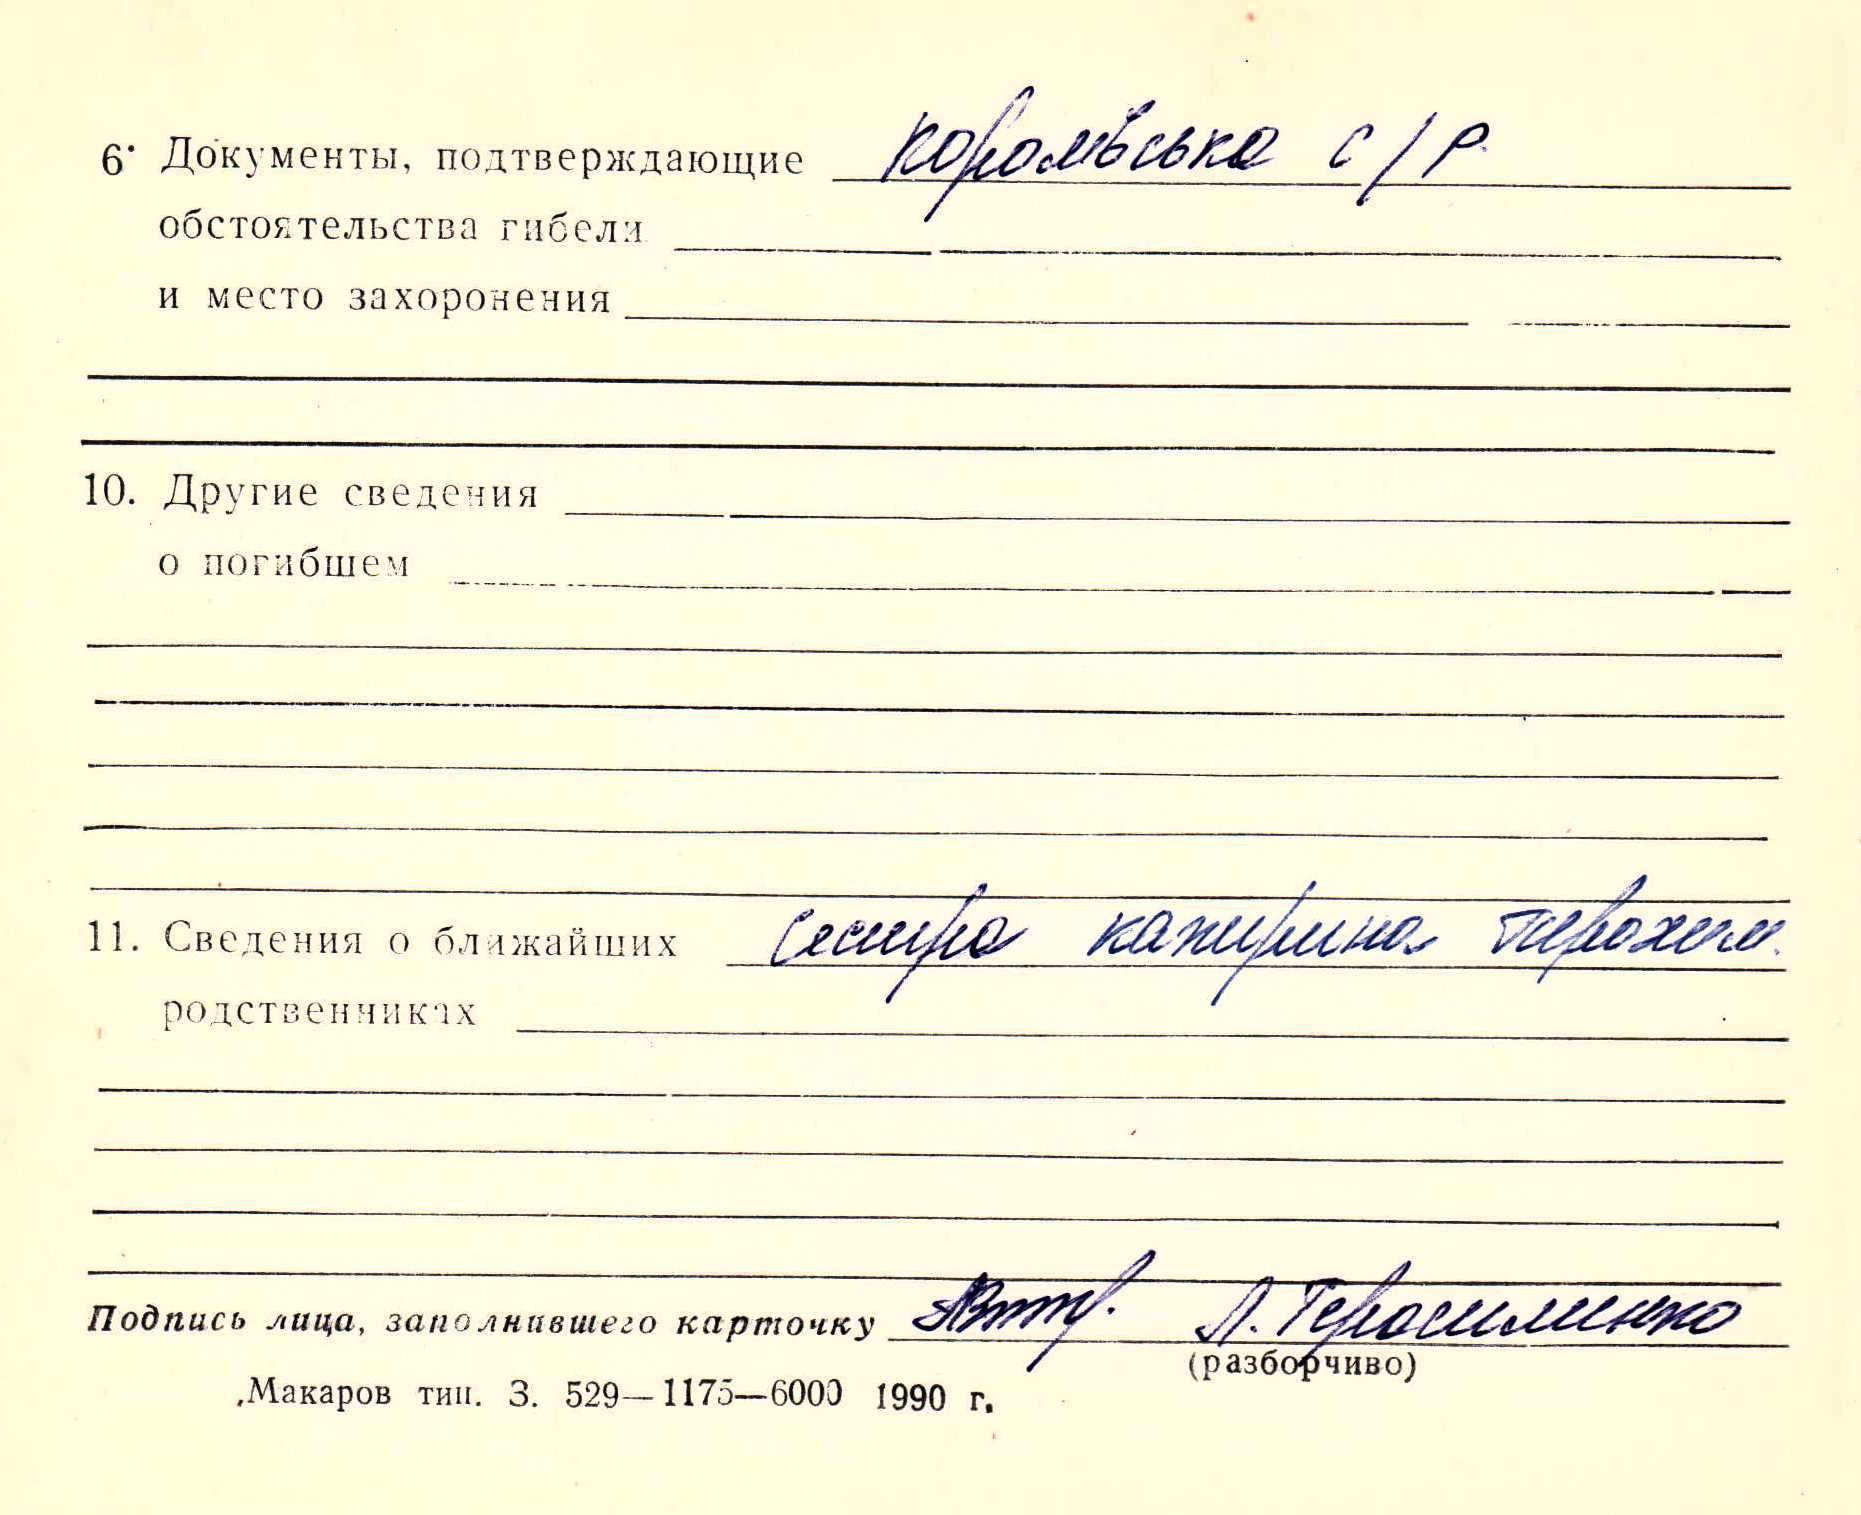 6. Документы, подтверждающие Королівська с/р
обстоятельства гибели
и место захоронения
10. Другие сведения
о погибшем
11. Сведения о ближайших сестра катирина
родственниках
Подпись лица, заполнившего карточку Л. Герасименко
(разборчиво)
Макаров тип. З. 529—1175—6000 1990 г.